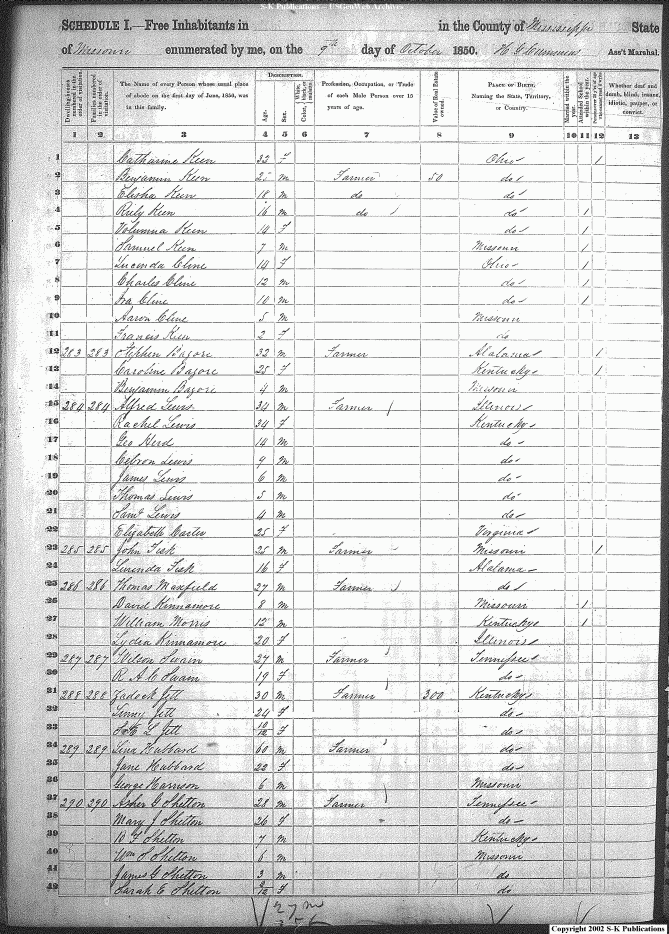 S-K Publications - USGenWeb Archives
SCHEDULE I.—Free Inhabitants in in the County of Mississippi State
of Missouri enumerated by me, on the 9th day of October 1850. Ass't Marshal.
Dwelling-houses numbered in the order of visitation.
Families numbered in the order of visitation.
The Name of every Person whose usual place of abode on the first day of June, 1850, was in this family.
DESCRIPTION.
Age.
Sex.
White, black, or mulatto.
Color,
Profession, Occupation, or Trade of each Male Person over 15 years of age.
Value of Real Estate owned.
PLACE OF BIRTH.
Naming the State, Territory, or Country.
Married within the year.
Attended School within the year.
Whether deaf and dumb, blind, insane, idiotic, pauper, or convict.
1 2 3 4 5 6 7 8 9 10 11 12 13
1 Catharine Keen 32 F Ohio 1
2 Benjamin Keen m Farmer 50 do
3 Elisha Keen 18 m do do
4 Riily Keen 16 m do do 1
5 Volumna Keen 14 F do 1
6 Samuel Keen 7 m Missouri 1
7 Lucinda Cline 14 F Ohio 1
8 Charles Cline 12 m do 1
9 Ira Cline 10 m do 1
10 Aaron Cline 5 m Missouri
11 Francis Keen 2 F do
12 283 283 Stephen Bagore 32 m Farmer Alabama 1
13 Caroline Bagore 28 F Kentucky 1
14 Benjamin Bagore 4 m Missouri
15 284 284 Alfred Lewis 34 m Farmer Illinois
16 Rachel Lewis 34 F Kentucky
17 Geo Herd 14 m do
18 Cebron Lewis 9 m do
19 James Lewis 6 m do
20 Thomas Lewis 5 m do
21 Saml Lewis 4 m do
22 Elizabeth Carter 25 F Virginia
23 285 285 John Fisk 25 m Farmer Missouri 1
24 Lurinda Fisk 16 F Alabama
25 286 286 Thomas Maxfield 27 m Farmer do
26 David Kinnamore 8 m Missouri 1
27 William Morris 12 m Kentucky 1
28 Lydia Kinnamore 20 F Illinois
29 287 287 Wilson Swain 27 m Farmer Tennessee
30 R A C Swain 19 F do
31 288 288 Zadock Jett 30 m Farmer 300 Kentucky
32 Jett 24 F do
33 L Jett 10/12 F do
34 289 289 Hubbard 60 m Farmer do
35 Jane Hubbard 22 F do
36 George Harrison 6 m Missouri
37 290 290 Asher G Shelton 28 m Farmer Tennessee
38 Mary J Shelton 26 F do
39 F Shelton 7 m Kentucky
40 Wm Shelton 6 m Missouri
41 James G Shelton 3 m do
42 Sarah E Shelton F do
27 m
Copyright 2002 S-K Publications